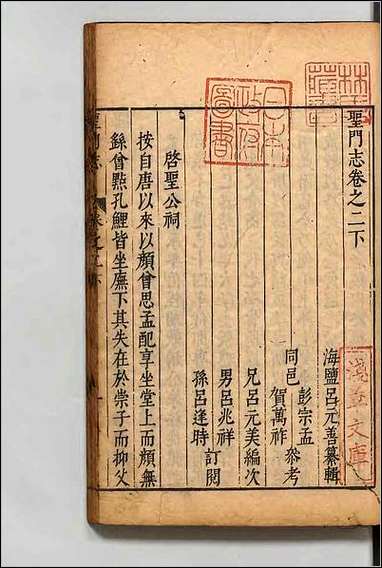 聖門志卷之二下
海鹽呂元善纂輯
彭宗孟
同邑
賀萬祚
叅考
兄呂元美編次
男呂兆祥
孫呂逢時
訂閱
啓聖公祠
按自唐以來以顏曾思孟配享坐堂上而顏無
繇曾㸃孔鯉皆坐廡下其失在於崇子而抑父
聖門志
林氏藏書
日本政府圖書
淺草文庫